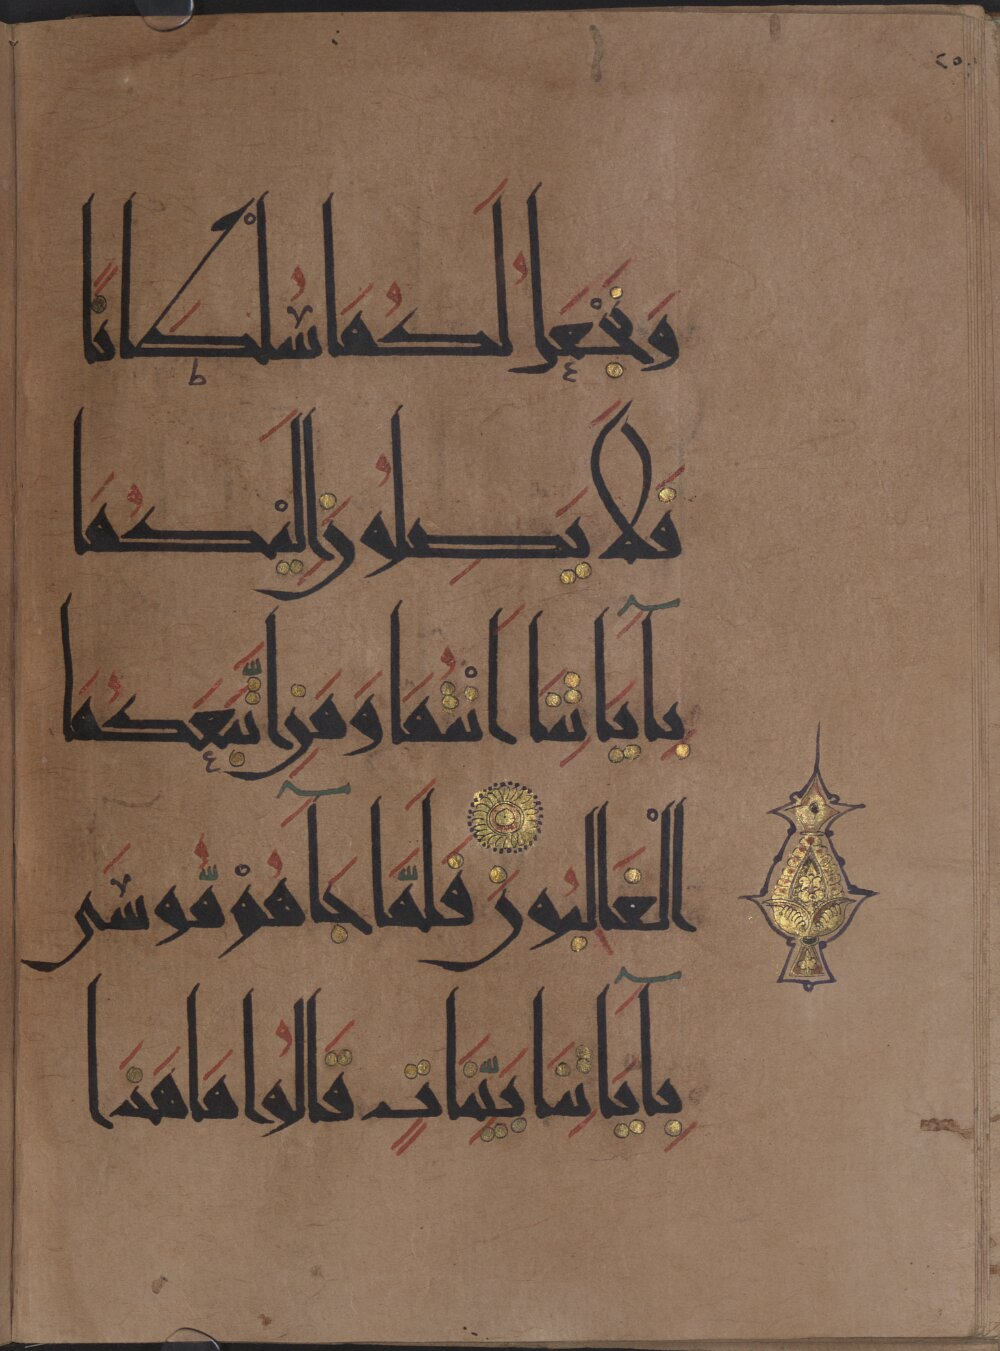 ٢٥٠
وَنَجْعَلُ لَكُمَا سُلْطَانًا
فَلَا يَصِلُونَ إِلَيْكُمَا
بِآيَاتِنَا أَنْتُمَا وَمَنِ اتَّبَعَكُمَا
الْغَالِبُونَ فَلَمَّا جَآءَهُمْ مُّوسَى
بِآيَاتِنَا بَيِّنَاتٍ قَالُوا مَا هَذَا